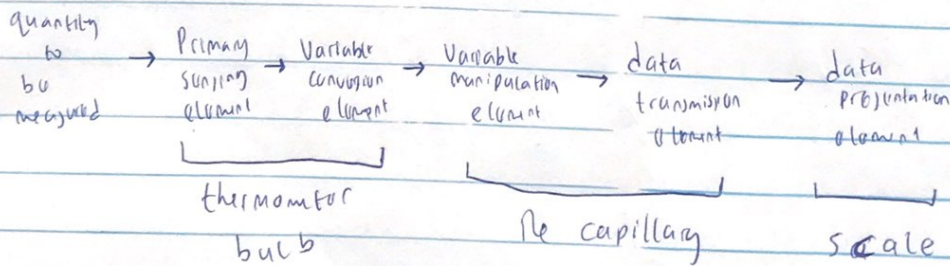 quantity
to
be
measured
→ Primary
sensing
element
→ Variable
conversion
element
→ Variable
manipulation
element
→ data
transmission
element
→ data
presentation
element
thermometer
bulb
The capillary
scale